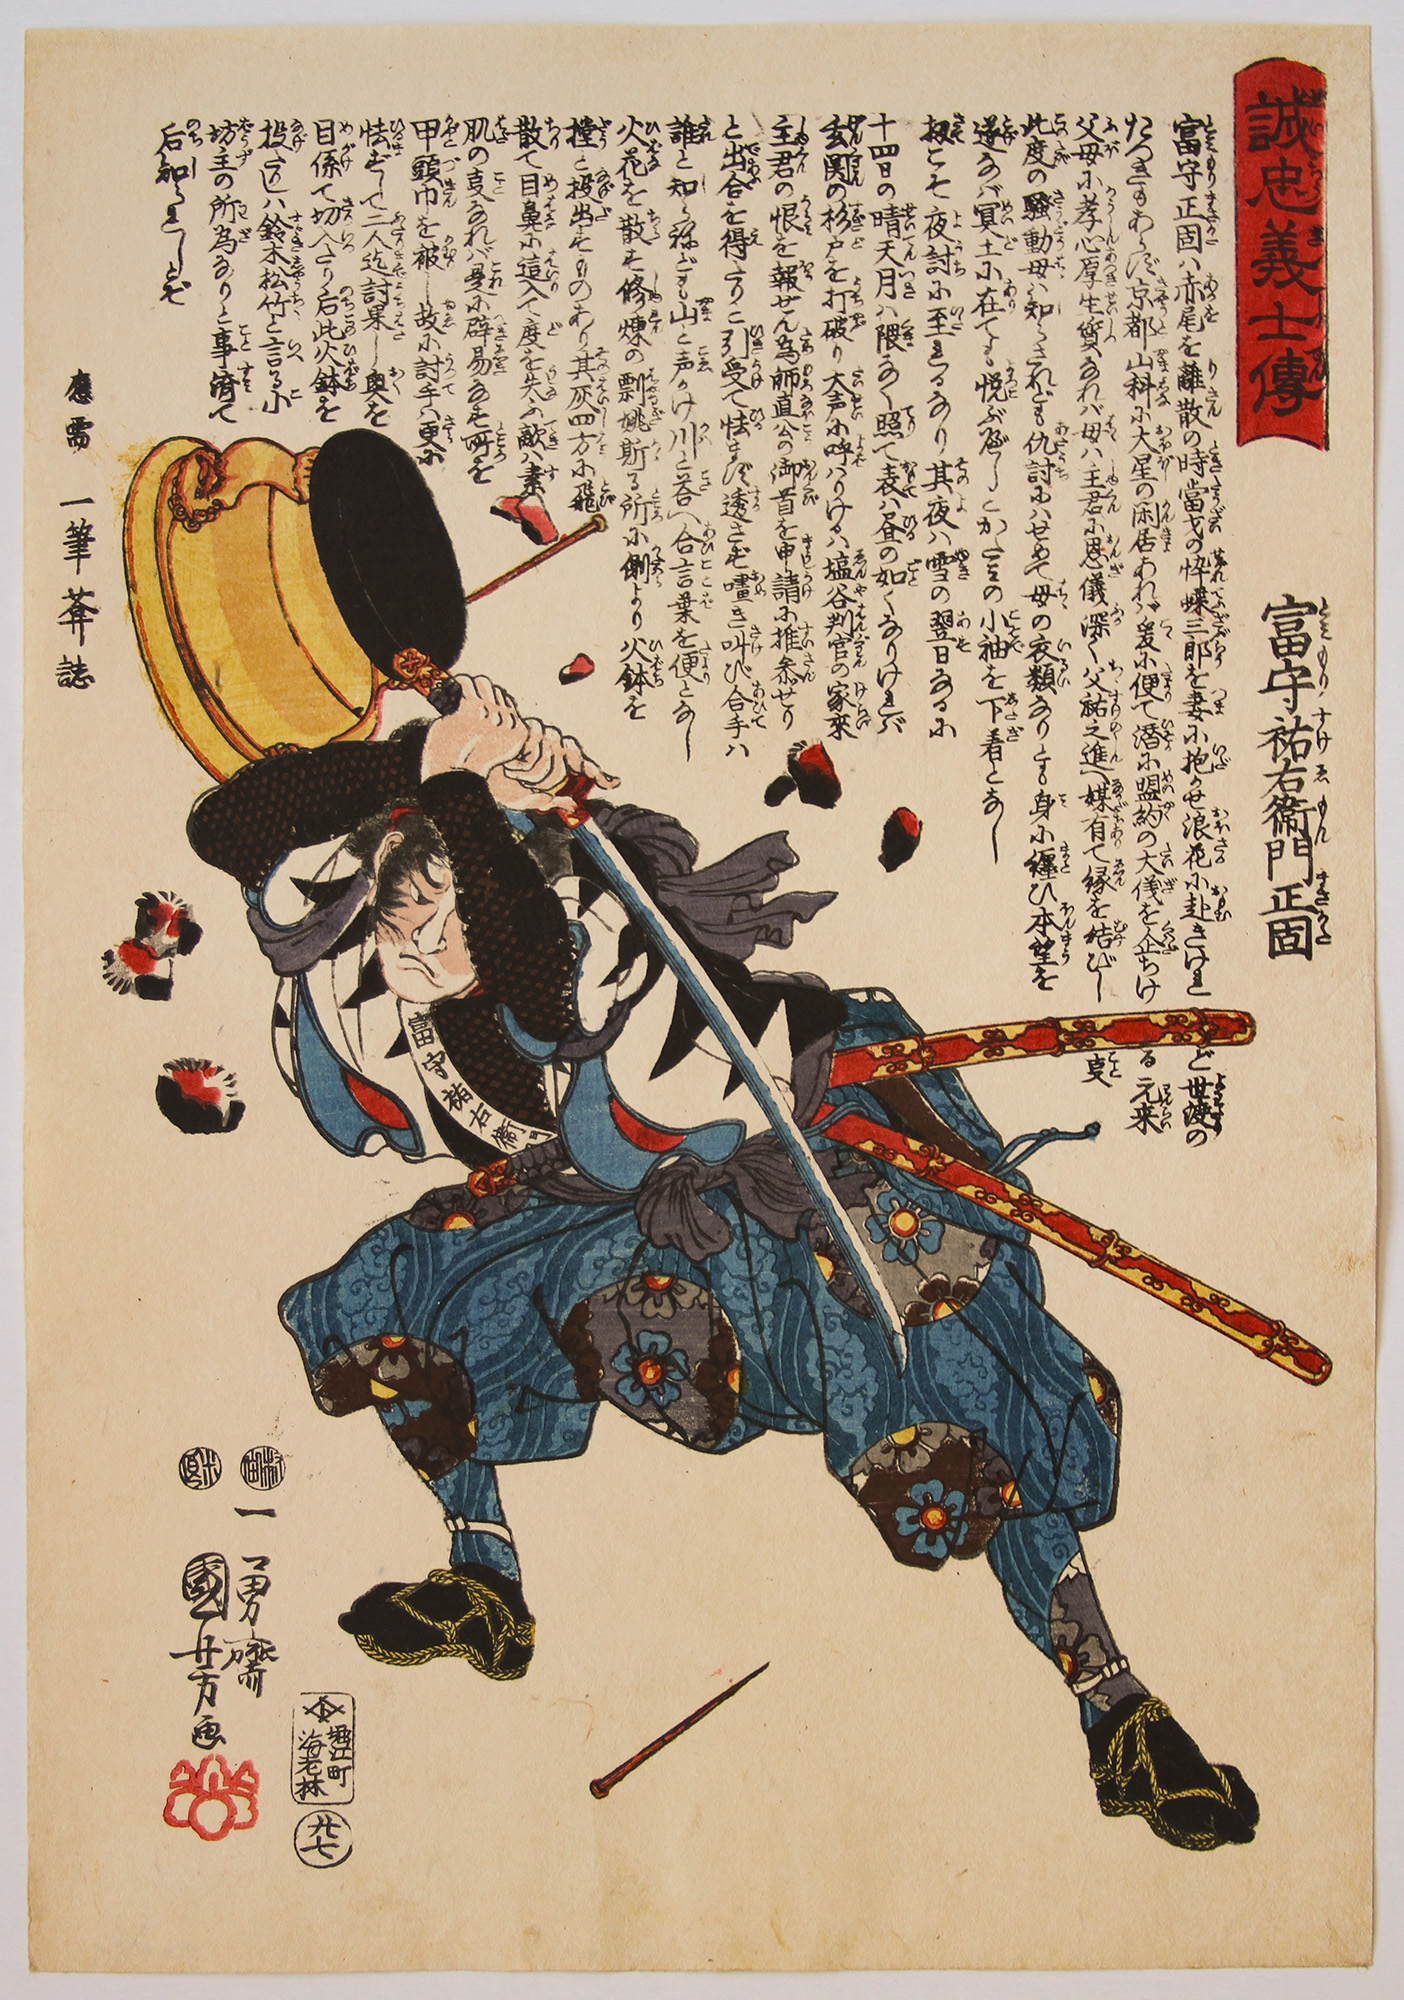 誠忠義士傳
冨守祐右衞門正固
冨守正固ハ赤尾を離散の時當才の忰蝶三郎を妻に抱かせ浪花に赴きけれど世渡の
たつきもあらず京都山科に大星の閑居あれバ爰に便て潜に盟約の大儀を企ちける元来
父母に孝心厚生質なれバ母ハ主君に恩儀深く父祐之進へ媒有て縁を結びし㕝
此度の騒動母ハ知らされども仇討にハせめて母の衣類なりとも身に纏ひ本望を
遂なバ冥土に在ても悦ぶべしとかたみの小袖を下着となし
扨こそ夜討に至れるなり其夜ハ雪の翌日なるに
十四日の晴天月ハ隈なく照て表ハ昼の如くなりけれバ
玄関の杉戸を打破り大声に呼ハりけるハ塩谷判官の家来
主君の恨を報ぜん為師直公の御首を申請に推参せり
と出合を得たりと引受て怯まず透さず嚍き叫び合手ハ
誰と知らねども山と声かけ川と答へ合言葉を便となし
火花を散す修煉の剽姚斯る所に側より火鉢を
撞と投出すものあり其灰四方に飛
散て目鼻に這入て度を失ふ敵ハ素
肌の㕝なれバ是に辟易なす所を
甲頭巾を被し故に討手ハ更に
怯ずして二人迄討果し奥を
目係て切入たり后此火鉢を
投たりしハ鈴木松竹と言る小
坊主の所為なりと事済て
后知られしとぞ
應需 一筆葊誌
冨守祐右衞門
村田
米良
一勇齋
國芳画
堀江町
海老林
廿七